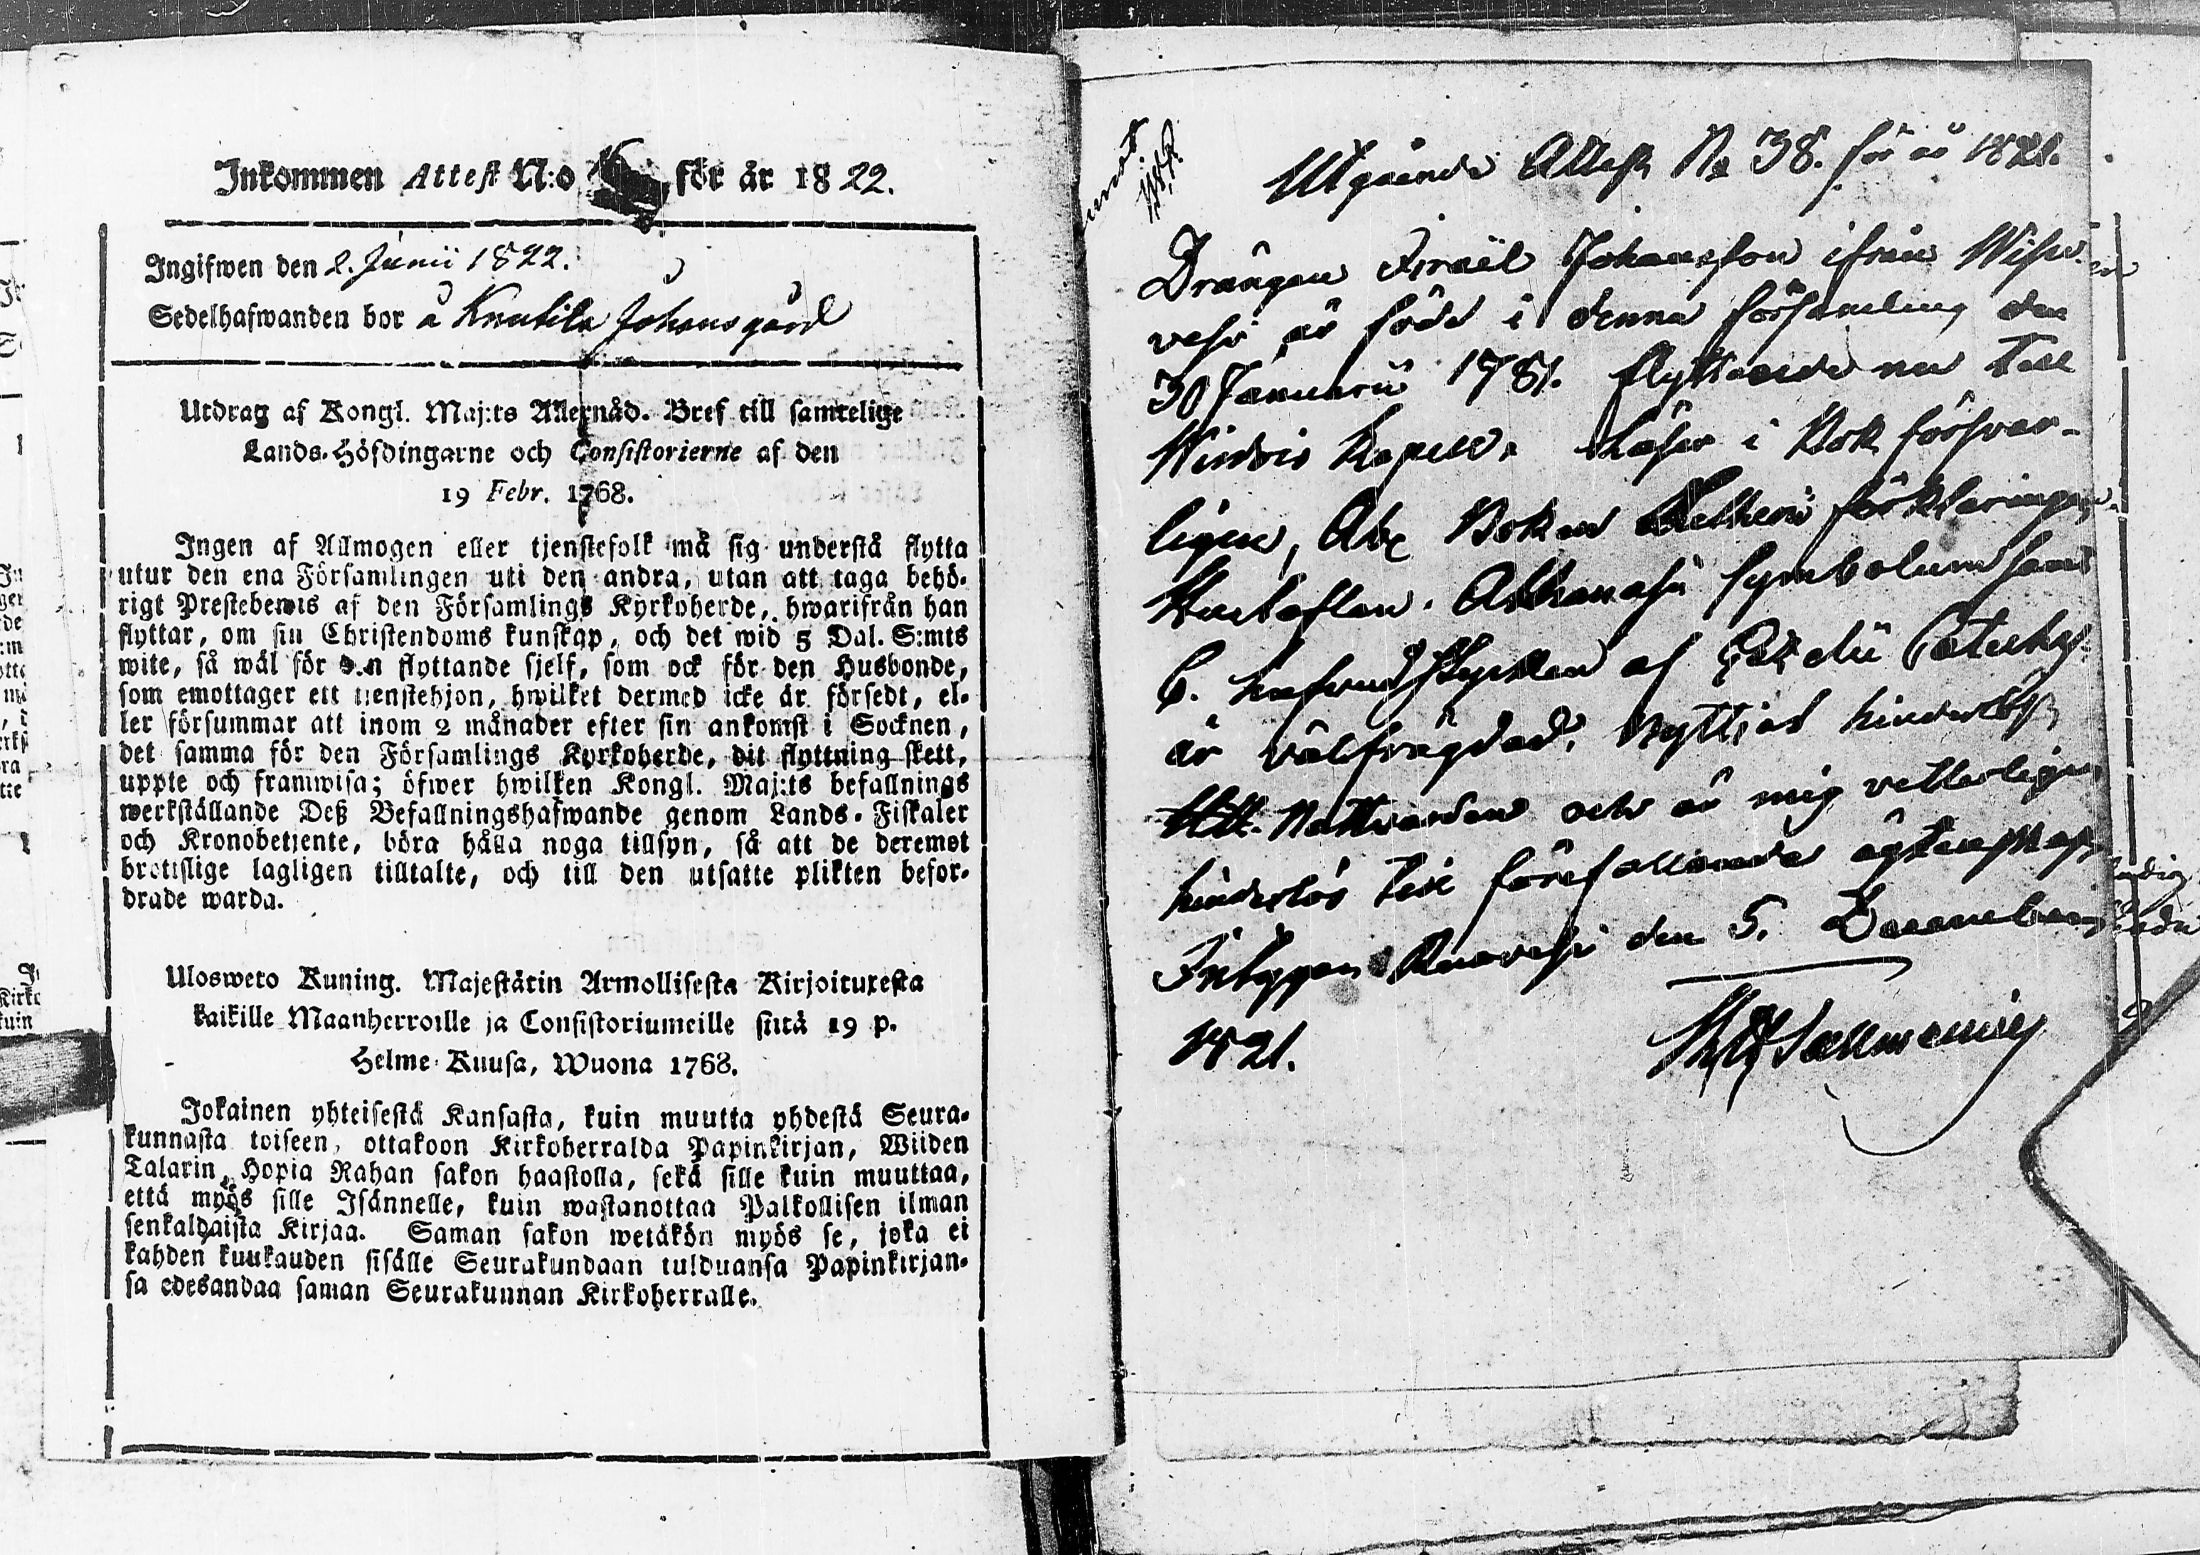 Inkommen Attest N:o för år 1822.
Ingifwen den 2. Junii 1822.
Sedelhafwanden bor å Knutila Johans gård
Utdrag af Kongl. Maj:ts Allernåd. Bref till samtelige
Lands-Höfdingarne och Consistorierne af den
19 Febr. 1768.
Ingen af Allmogen eller tjenstefolk må sig understå flytta
utur den ena Församlingen uti den andra, utan att taga behö-
rigt Prestebewis af den Församlings Kyrkoherde, hwarifrån han
flyttar, om sin Christendoms kunskap, och det wid 5 Dal. S:mts
wite, så wäl för den flyttande sjelf, som ock för den Husbonde,
som emottager ett tjenstehjon, hwilket dermed icke är försedt, el-
ler försummar att inom 2 månader efter sin ankomst i Socknen,
det samma för den Församlings Kyrkoherde, dit flyttning skett,
uppte och framwisa; öfwer hwilken Kongl. Maj:ts befallnings
werkställande Deß Befallningshafwande genom Lands-Fiskaler
och Kronobetjente, böra hålla noga tillsyn, så att de deremot
brotislige lagligen tilltalte, och till den utsatte plikten befor-
drade warda.
Ulosweto Kuning. Majestätin Armollisesta Kirjoituxesta
kaikille Maanherroille ja Consistoriumeille siitä 19 p.
Helme-Kuusa, Wuona 1768.
Jokainen yhteisestä Kansasta, kuin muutta yhdestä Seura-
kunnasta toiseen, ottakoon Kirkoherralda Papinkirjan, Wiiden
Talarin Hopia Rahan sakon haastolla, sekä sille kuin muuttaa,
että myös sille Isännelle, kuin wastanottaa Palkollisen ilman
senkaldaista Kirjaa. Saman sakon wetäkön myös se, joka ei
kahden kuukauden sisälle Seurakundaan tulduansa Papinkirjan-
sa edesandaa saman Seurakunnan Kirkoherralle.
Utgående Attest No 38. för år 1821.
Drängen Israël Johansson ifrån Wisu-
vesi är född i denna församling den
30 Januarii 1781. flyttande nu till
Wirdois Kapell. Läser i Bok försvar-
ligen, Abc Boken Lutheri förklaringen,
Hustaflan. Athanasii Symbolum samt
C. hufvudstycken af Gezelii Cateches.
är välfrägdad. Nyttjat hinderlöst
HH. Nattvarden och är mig vetterligen
hinderlös till förefallande ägtenskap,
intygar Ruovesi den 5. December
1821.